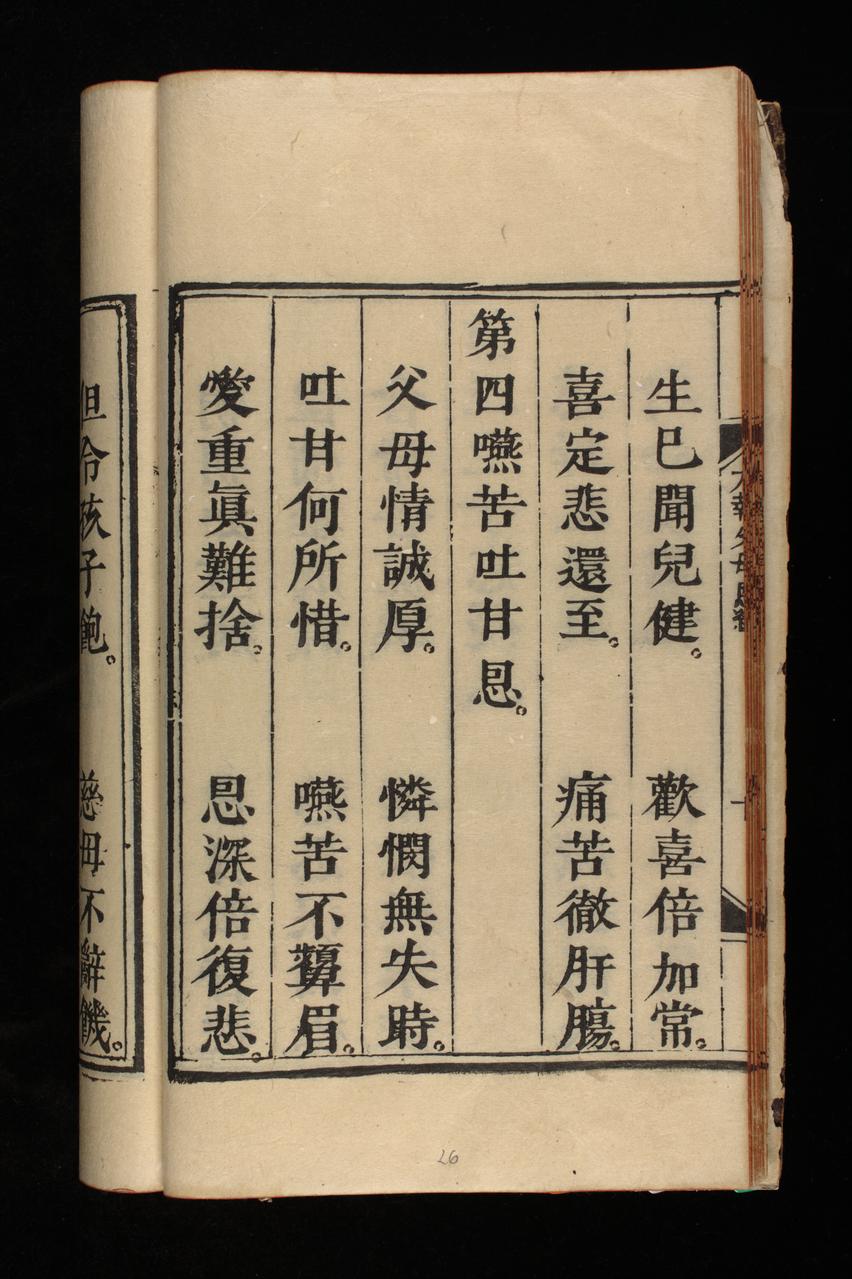 生已聞兒健。 歡喜倍加常。
喜定悲還至。 痛苦徹肝膓。
第四嚥苦吐甘恩。
父母情誠厚。 憐憫無失時。
吐甘何所惜。 嚥苦不顰眉。
愛重眞難捨。 恩深倍復悲。
但令孩子飽。 慈母不辭饑。
26